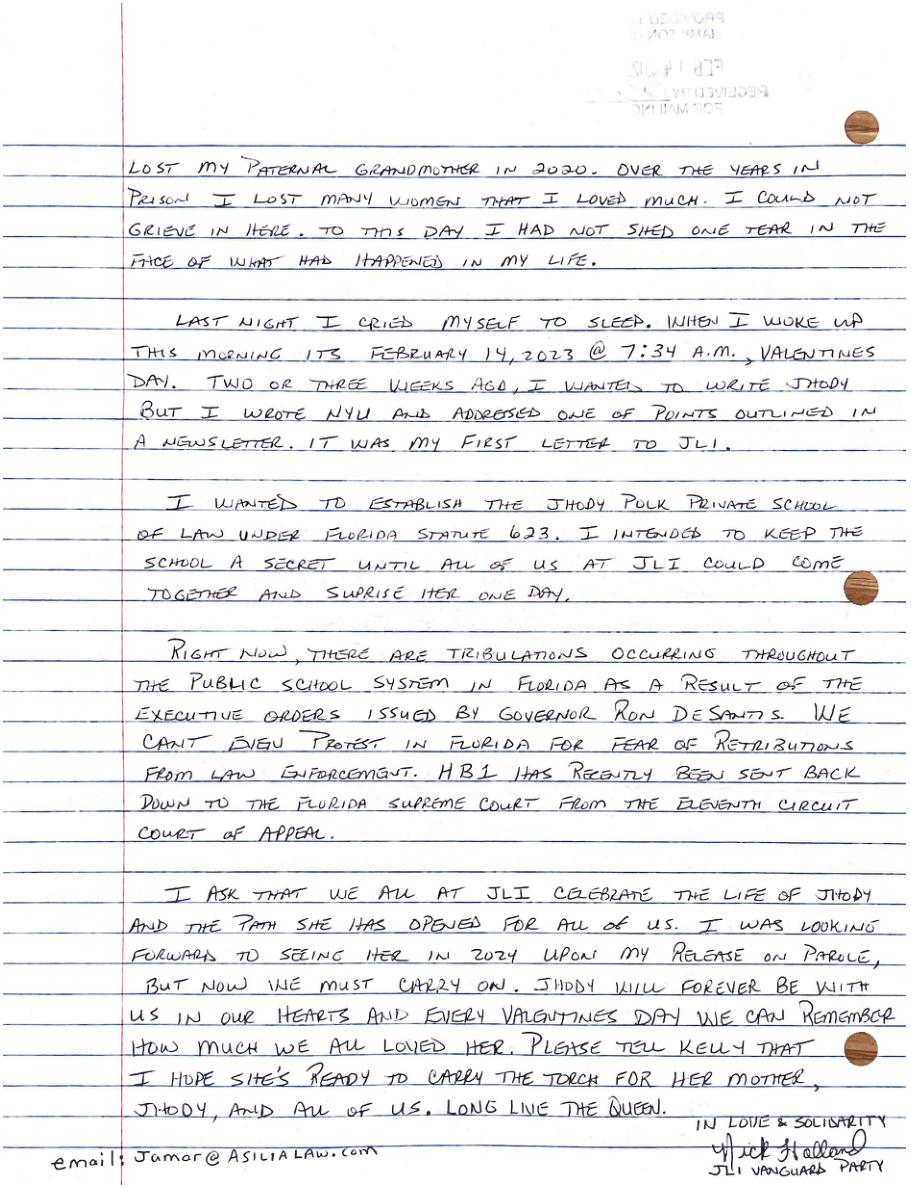 PROVIDED TO
FEB 14
RECEIVED BY
FOR MAILING
LOST MY PATERNAL GRANDMOTHER IN 2020. OVER THE YEARS IN
PRISON I LOST MANY WOMEN THAT I LOVED MUCH. I COULD NOT
GRIEVE IN HERE. TO THIS DAY I HAD NOT SHED ONE TEAR IN THE
FACE OF WHAT HAD HAPPENED IN MY LIFE.
LAST NIGHT I CRIED MYSELF TO SLEEP. WHEN I WOKE UP
THIS MORNING ITS FEBRUARY 14, 2023 @ 7:34 A.M., VALENTINES
DAY. TWO OR THREE WEEKS AGO, I WANTED TO WRITE JHODY
BUT I WROTE NYU AND ADDRESED ONE OF POINTS OUTLINED IN
A NEWSLETTER. IT WAS MY FIRST LETTER TO JLI.
I WANTED TO ESTABLISH THE JHODY POLK PRIVATE SCHOOL
OF LAW UNDER FLORIDA STATUTE 623. I INTENDED TO KEEP THE
SCHOOL A SECRET UNTIL ALL OF US AT JLI COULD COME
TOGETHER AND SUPRISE HER ONE DAY.
RIGHT NOW, THERE ARE TRIBULATIONS OCCURRING THROUGHOUT
THE PUBLIC SCHOOL SYSTEM IN FLORIDA AS A RESULT OF THE
EXECUTIVE ORDERS ISSUED BY GOVERNOR RON DESANTIS. WE
CANT EVEN PROTEST IN FLORIDA FOR FEAR OF RETRIBUTIONS
FROM LAW ENFORCEMENT. HB1 HAS RECENTLY BEEN SENT BACK
DOWN TO THE FLORIDA SUPREME COURT FROM THE ELEVENTH CIRCUIT
COURT OF APPEAL.
I ASK THAT WE ALL AT JLI CELEBRATE THE LIFE OF JHODY
AND THE PATH SHE HAS OPENED FOR ALL OF US. I WAS LOOKING
FORWARD TO SEEING HER IN 2024 UPON MY RELEASE ON PAROLE,
BUT NOW WE MUST CARRY ON. JHODY WILL FOREVER BE WITH
US IN OUR HEARTS AND EVERY VALENTINES DAY WE CAN REMEMBER
HOW MUCH WE ALL LOVED HER. PLEASE TELL KELLY THAT
I HOPE SHE'S READY TO CARRY THE TORCH FOR HER MOTHER,
JHODY, AND ALL OF US. LONG LIVE THE QUEEN.
IN LOVE & SOLIDARITY
Nick Holland
JLI VANGUARD PARTY
email: Jamar@ASILIALAW.com